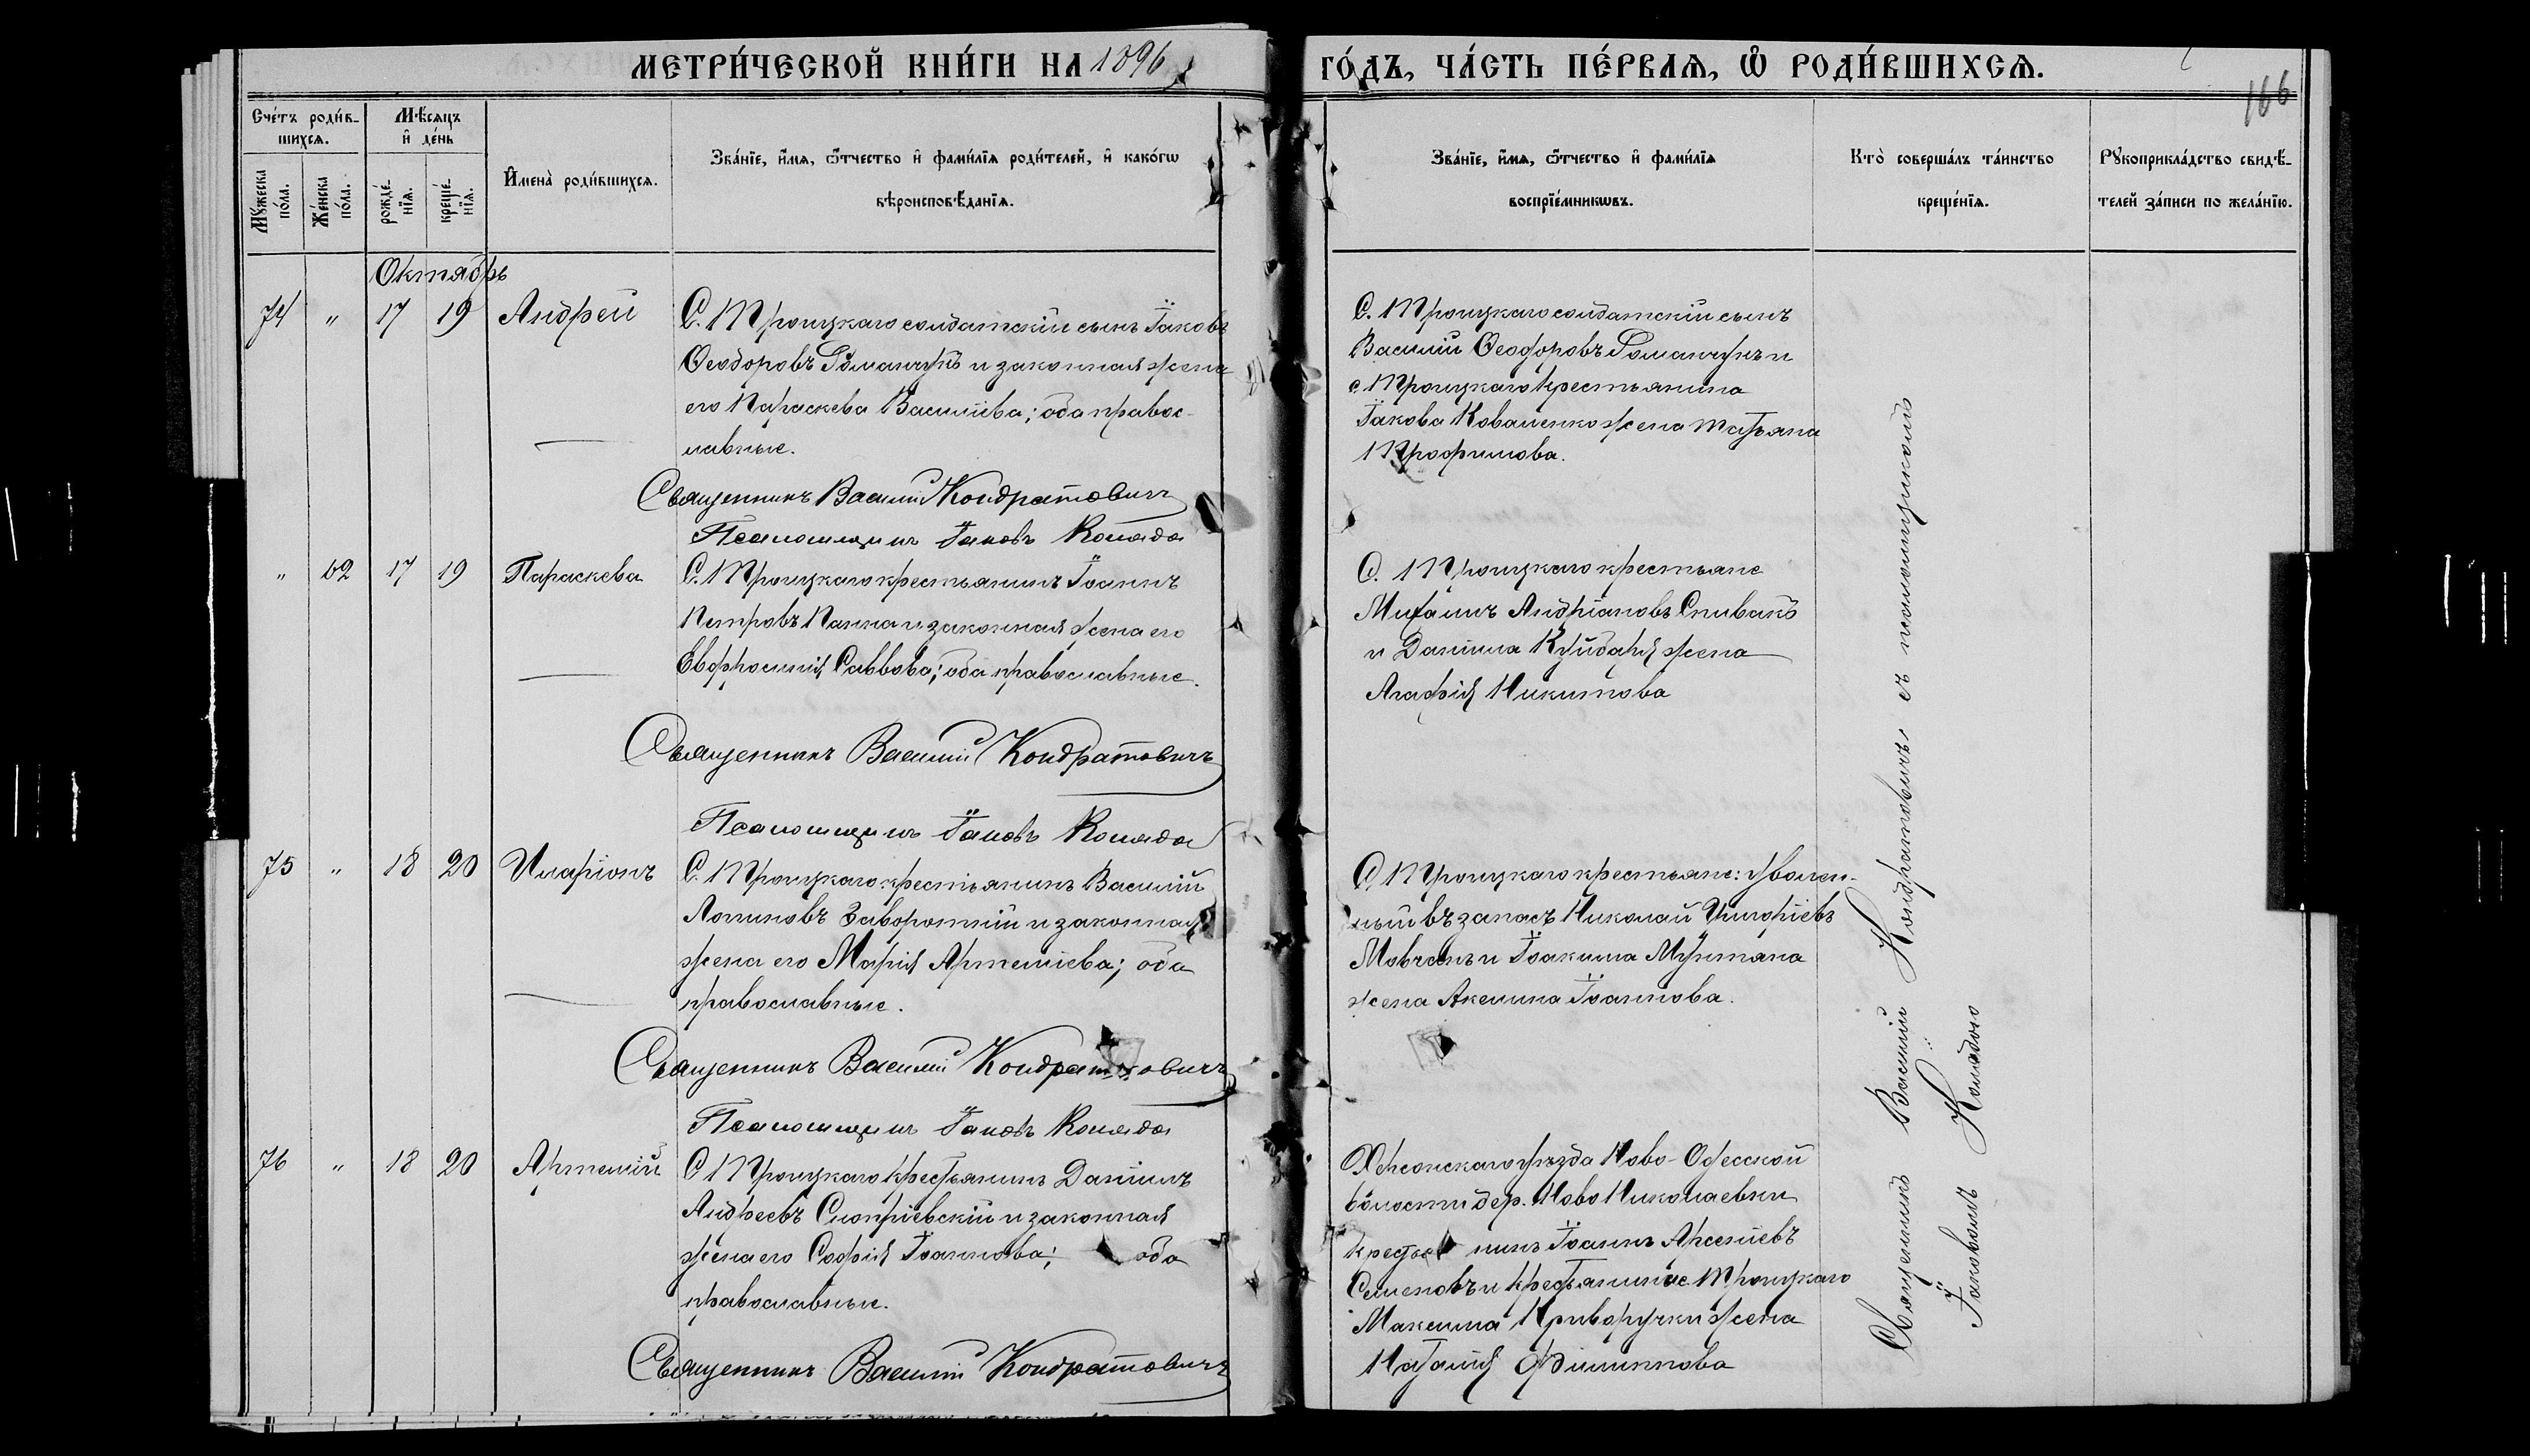 МЕТРИ́ЧЕСКОЙ КНИ́ГИ НА 1896
ГО́ДЪ, ЧА́СТЬ ПЕ́РВАѦ, Ѡ҆ РОДИ́ВШИХСѦ.
166
Сче́тъ роди́в-
шихсѧ.
Мѣ́сѧцъ
и҆ де́нь
Мꙋ́жеска
по́ла.
Же́нска
по́ла.
рожде́-
нїѧ.
креще́-
нїѧ.
И҆мена̀ роди́вшихсѧ.
Зва́нїе, и҆́мѧ, ѻ҆́тчество и҆ фами́лїѧ роди́телей, и҆ како́гѡ
вѣроисповѣ́данїѧ.
Зва́нїе, и҆́мѧ, ѻ҆́тчество и҆ фами́лїѧ
воспрїе́мникѡвъ.
Кто̀ соверша́лъ та́инство
креще́нїѧ.
Рꙋкоприкла́дство свидѣ́-
телей за́писи по жела́нїю.
Октябрь
74 " 17 19 Андрей
С. Троицкаго солдатскій сынъ Іаковъ
Ѳеодоровъ Романчукъ и законная жена
его Параскева Василіева; оба правос-
лавные.
Священникъ Василій Кондратовичъ
Псаломщикъ Іаковъ Коляда
С. Троицкаго солдатскій сынъ
Василій Ѳеодоровъ Романчукъ и
с. Троицкаго крестьянина
Іакова Коваленко жена Татьяна
Трофимова.
" 62 17 19 Параскева
С. Троицкаго крестьянинъ Іоаннъ
Петровъ Панна и законная жена его
Евфросинія Саввова; оба православные.
Священникъ Василій Кондратовичъ
Псаломщикъ Іаковъ Коляда
С. Троицкаго крестьяне
Михаилъ Андріановъ Спивакъ
и Даніила Куйдаря жена
Агафія Никитова
75 " 18 20 Иларіонъ
С. Троицкаго крестьянинъ Василій
Логиновъ Заворотній и законная
жена его Марія Артеміева; оба
православные.
Священникъ Василій Кондратовичъ
Псаломщикъ Іаковъ Коляда
С. Троицкаго крестьяне: уволен-
ный въ запасъ Николай
Мовчанъ и Іоакима Мунтяна
жена Акелина Іоаннова.
76 " 18 20 Артемій
С Троицкаго крестьянинъ Даніилъ
Андреевъ и законная
жена его Софія Іоаннова; оба
православные.
Священникъ Василій Кондратовичъ
Херсонскаго уѣзда Ново-Одесской
волости дер. Ново Николаевки
крестьянинъ Іоаннъ Арсеніевъ
Семеновъ и крестьянина с. Троицкаго
Максима Криворучки жена
Наталія Филиппова
Священникъ Василій Кондратовичъ съ псаломщикомъ
Іаковомъ Колядою